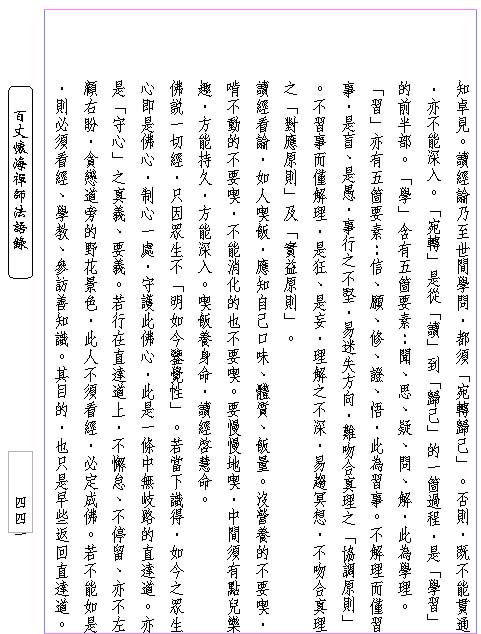 知卓見。讀經論乃至世間學問，都須「宛轉歸己」。否則，既不能貫通
，亦不能深入。「宛轉」是從「讀」到「歸己」的一箇過程，是「學習」
的前半部。「學」含有五箇要素：聞、思、疑、問、解，此為學理。
「習」亦有五箇要素：信、願、修、證、悟，此為習事。不解理而僅習
事，是盲、是愚，事行之不堅，易迷失方向，難吻合真理之「協調原則」
。不習事而僅解理，是狂、是妄，理解之不深，易趨冥想，不吻合真理
之「對應原則」及「實益原則」。
讀經看論，如人喫飯，應知自己口味、體質、飯量。沒營養的不要喫，
啃不動的不要喫，不能消化的也不要喫。要慢慢地喫，中間須有點兒樂
趣，方能持久，方能深入。喫飯養身命，讀經啓慧命。
佛說一切經，只因眾生不「明如今鑒覺性」。若當下識得，如今之眾生
心即是佛心，制心一處，守護此佛心，此是一條中無岐路的直達道。亦
是「守心」之真義、要義。若行在直達道上，不懈怠、不停留、亦不左
顧右盼，貪戀道旁的野花景色，此人不須看經，必定成佛。若不能如是
，則必須看經、學教、參訪善知識。其目的，也只是早些返回直達道。
百丈懷海禪師法語錄
四四一